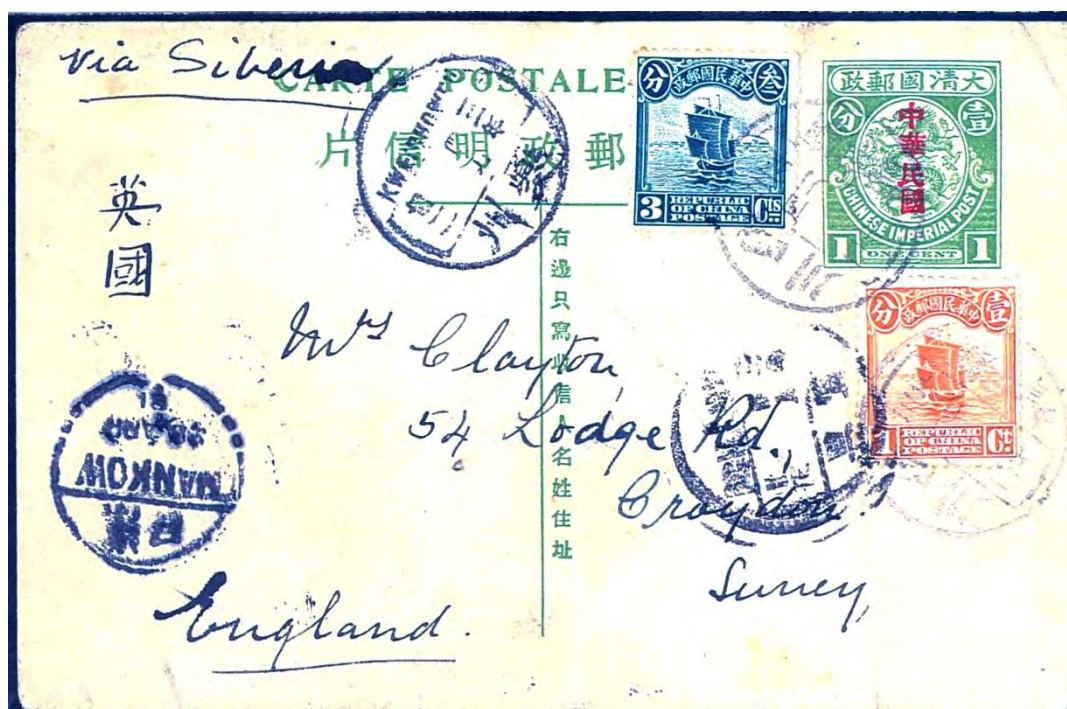 via Siberia
CARTE POSTALE
郵政明信片
英國
右邊只寫收信人名姓住址
Mrs Clayton,
54 Lodge Rd.,
Croydon
Surrey
England.
中華民國郵政
叁分
REPUBLIC
OF CHINA
3 POSTAGE Cts
大清國郵政
壹分
中華民國
CHINESE IMPERIAL POST
1 ONE CENT 1
中華民國郵政
壹分
REPUBLIC
OF CHINA
1 POSTAGE Ct
HANKOW